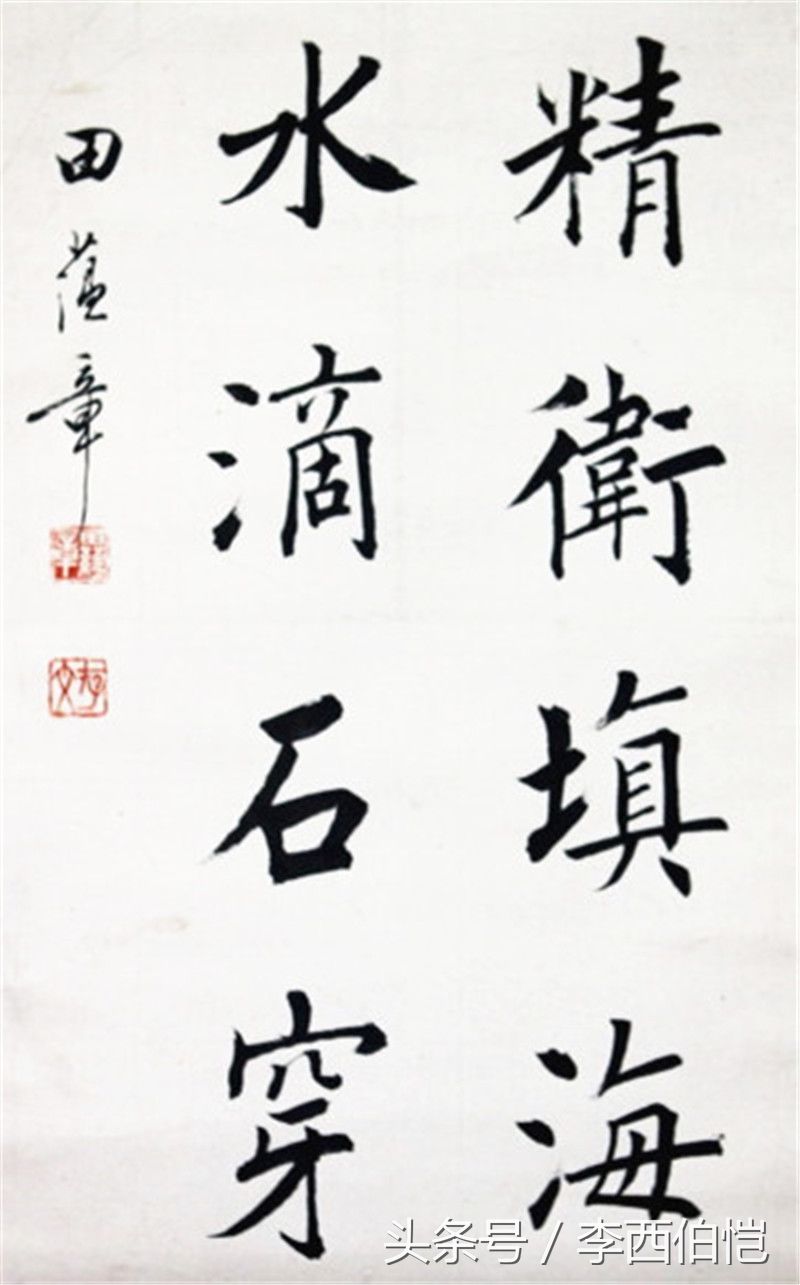 精衛填海
水滴石穿
田蕴章
头条号 / 李西伯恺